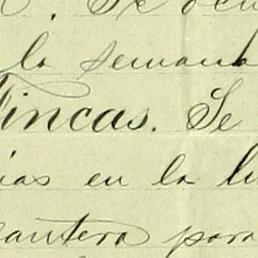 . Se
la semana
Fincas. Se
ias en la
cantera para